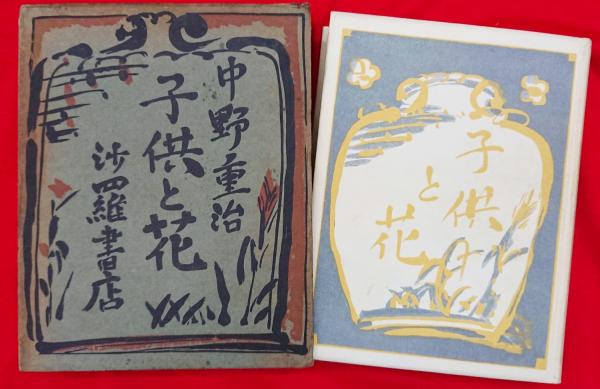 中野重治
子供と花
沙羅書店
子供
と
花